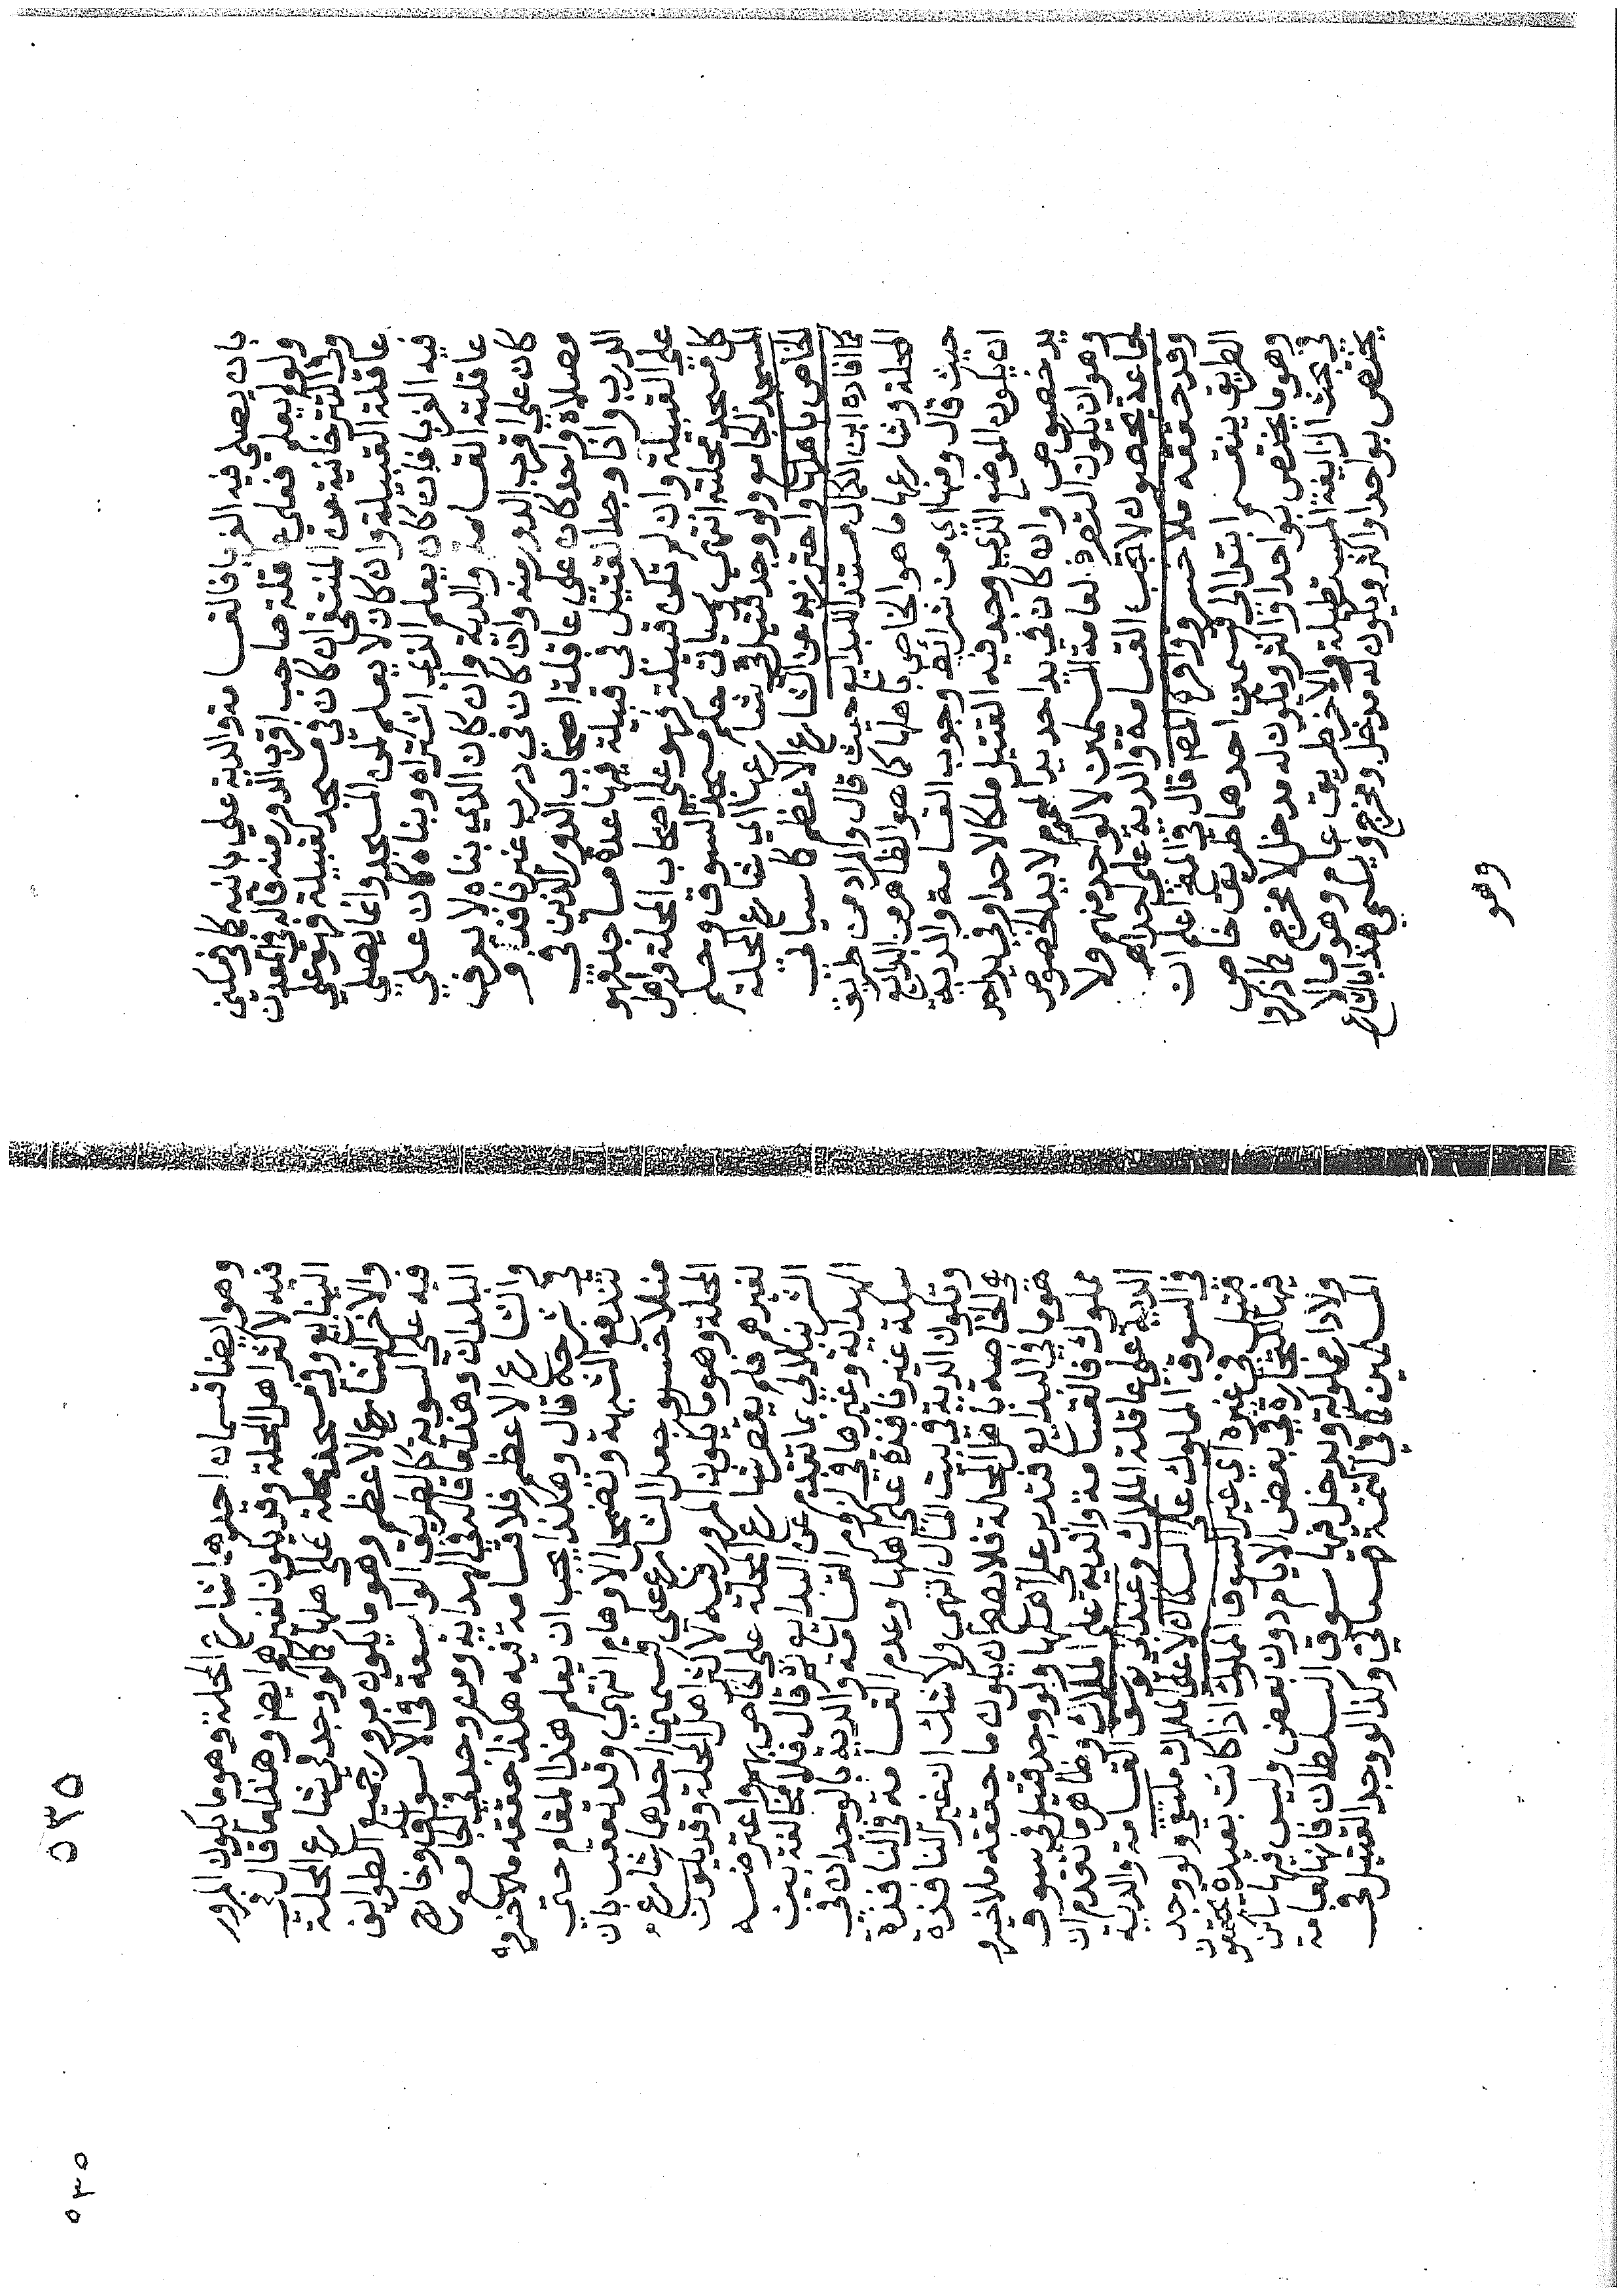 بان يصلي فيه الغربا فالقسامة والدية على بانيه كما في مسكين
ولو لم يعلم فعلى عاقلة صاحب اقرب الدور منه قاله في المعدن
وفي التترخانية عن المنتقى ان كان في مسجد لقبيلة فهو على
عاقلة القبيلة وان كان لا يعلم لمن المسجد وانما يصلي
فيه الغربا فان كان يعلم الذي اشتراه وبناه كان على
عاقلته القسامة والدية وان كان الذي بناه لا يعرف
كان على اقرب الدور منه وان كان في درب غير نافذ و
مصلاه واحد كان على عاقلة اصحاب الدور الذين في
الدرب واذا وجد القتيل في قبيلة فيها عدة مساجد فهو
على القبيلة وان لم تكن قبيلة فهو على اصحاب المحلة واهل
كل مسجد محلة انتهى وسياتي حكم مسجد السوق وحكم
المسجد الجامع ولو وجد قتيل في شارعها اي شارع المحلة
الخاص باهلها واحترز به عن الشارع الاعظم كما سياتي
كما افاده ابن الكمال مستندا للبدايع حيث قال والمراد من طريق
المحلة وشارعها ما هو الخاص باهلها كما هو الظاهر من البدايع
حيث قال ومنها اي من شرائط وجوب القسامة والدية
ان يكون الموضع الذي وجد فيه القتيل ملكا لاحد او في يد احد
يد خصوص وان كان في يد احد يد العموم لا يد الخصوص
وهو ان يكون التصرف لعامة المسلمين لا لواحد منهم ولا
لجماعة يحصون لا تجب القسامة والدية على احد اهـ
وقد حققه ملا خسرو واقره المص قال في المنح اعلم ان
الطريق ينقسم ابتدا الى قسمين احدهما طريق خاص
وهو ما يختص بواحد او اكثر ويكون له مدخل لا مخرج كما ذكروا
في بحث الزايغة المستطيلة والاخر طريق عام وهو ما لا
يختص بواحد او اكثر ويكون له مدخل ومخرج ويسمى هذا بالشارع
وهو
٥٣٥
وهو ايضا قسمان احدهما شارع المحلة وهو ما يكون المرور
فيه لاكثر اهل المحلة وقد يكون لغيرهم ايضا وهذا ما قال في
الينابيع وفي مسجد محلة على اهلها كما لو وجد في شارع المحلة
والاخر الشارع الاعظم وهو ما يكون مرور جميع الطوايف
فيه على السوية كالطريق الواسعة في الاسواق وخارج
البلدان وهذا ما قال في الهداية ومن وجد في الجامع
والشارع الاعظم فلا قسامة فيه هكذا حققه ملا خسرو
في شرحه قال وهكذا يجب ان يعلم هذا المقام حتى
تندفع الشبهة وتضمحل الاوهام انتهى وقد تعقب بان
منلا خسرو جعل الشارع على قسمين احدهما شارع
المحلة وهو ما يكون المرور فيه لاكثر اهل المحلة وقد يكون
لغيرهم فلم يقصر شارع المحلة على الخاص بهم واعترضه
الشرنبلالي بما تقدم عن البدايع ثم قال فلا مخالفة بين
الهداية وغيرها في لزوم القسامة والدية بالوجدان في
سكة غير نافذة على اهلها وعدم القسامة في النافذة
وتكون الدية في بيت المال انتهى ولا شك ان غير النافذة
هي الخاصة باهل المحلة فلا يصح ان يكون ما حققه ملا خسرو
في البدايع فتدبر على اهلها ولو وجد قتيل في سوق
مملوك فالقسامة والدية على الملاك وظاهر ما تقدم ان
الدية على عاقلة الملاك وعند ابي يوسف القسامة والدية
في السوق المملوك على السكان لا على الملاك ملتقى ولو وجد
قتيل في غيره اي غير السوق المملوك اذا كانت بعيدة
فيها للتجارة في بعض الايام دون بعض وليس فيها ساكن
ولا دار مملوكة ويدخل فيها سوق السلطان فانها لعامة
المسلمين كما في التتمة قهستاني وكذا لو وجد القتيل في
٥٣٥